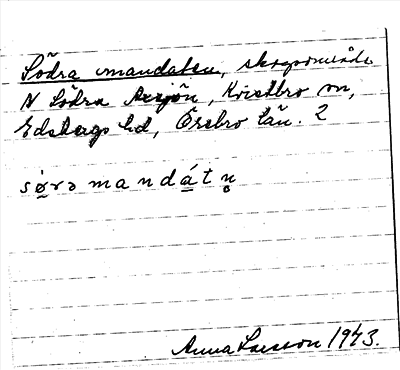 Södra mandaten, skogsområde
N Södra Axsjön, Kvistbro sn,
Edsbergs hd, Örebro län. 2
sø̱rə mandá̱tn̥
Anna Larsson 1943.